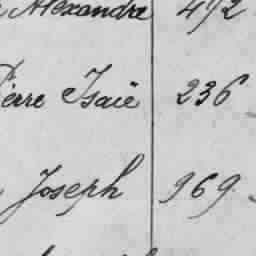 Alexandre 492
Pierre Isaïe 236
Joseph 969